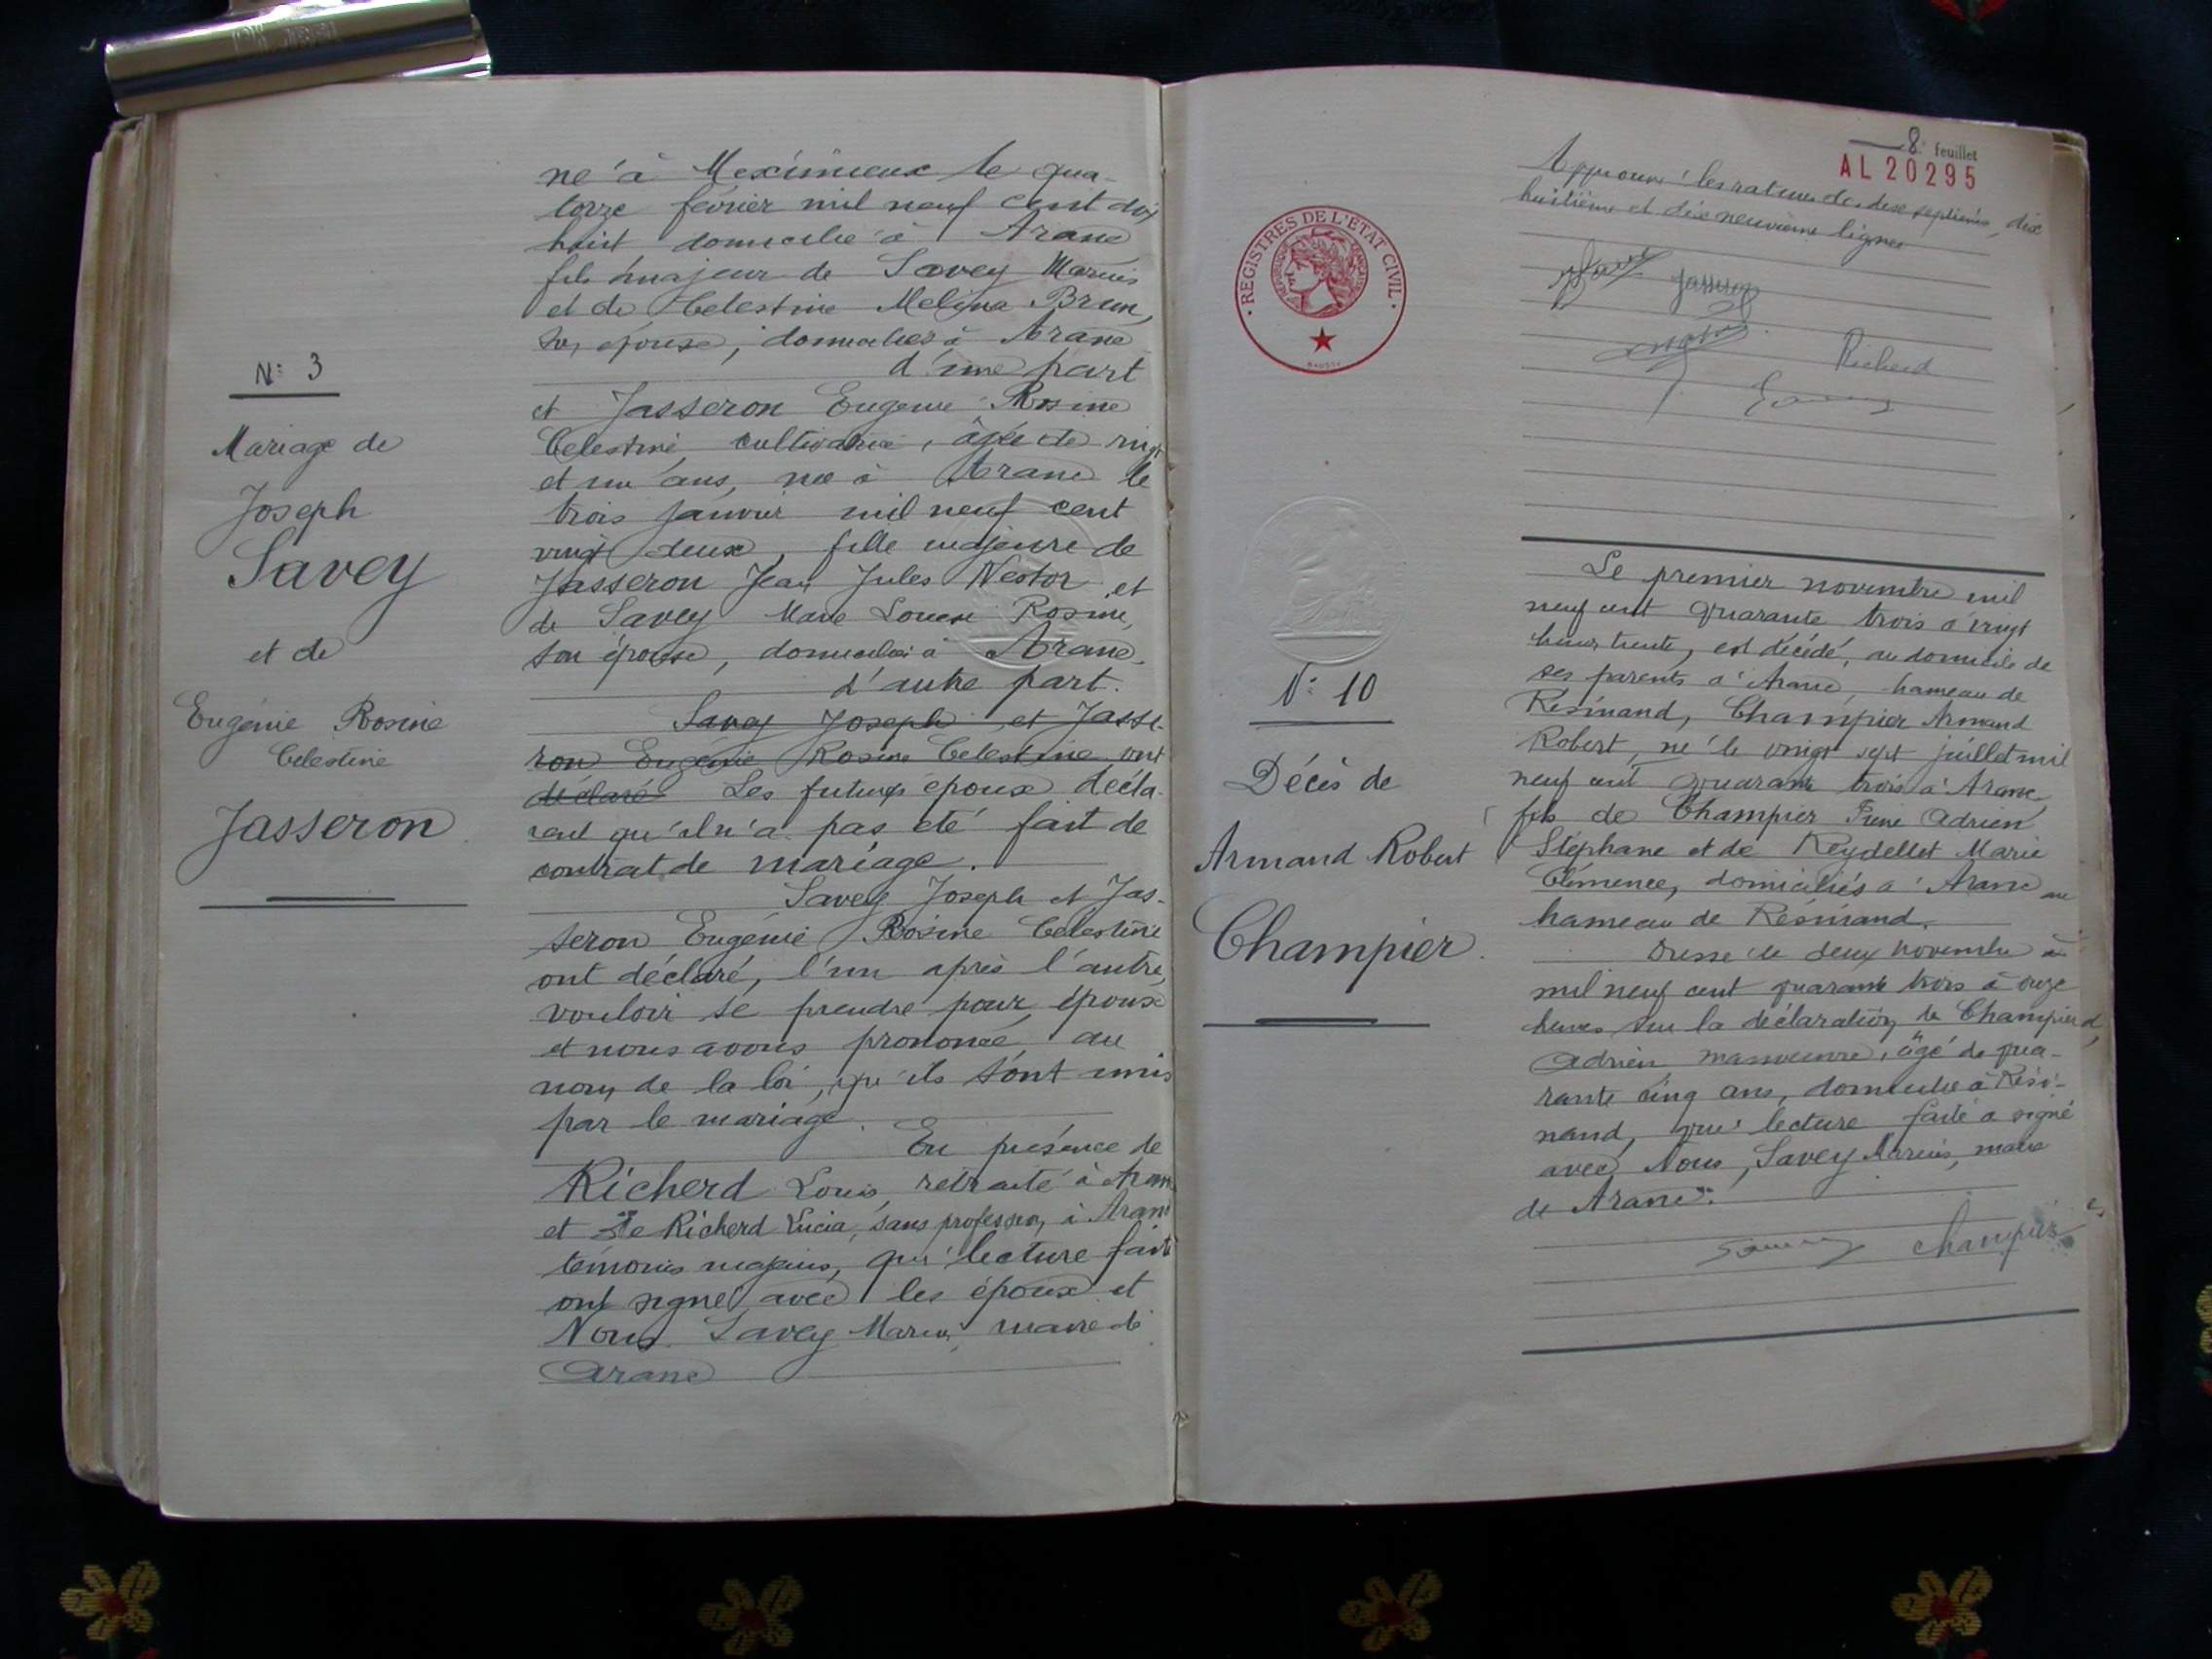 N: 3
Mariage de
Joseph
Savey
et de
Eugénie Rosine
Celestine
Jasseron
né à Meximieux le qua-
torze février mil neuf cent dix
huit domicilié à Aranc
fils majeur de Savey Marius
et de Celestine Melina Brun,
son épouse, domiciliés à Aranc
d'une part
et Jasseron Eugenie Rosine
Celestine, cultivatrice, âgée de vingt
et un ans, née à Aranc le
trois janvier mil neuf cent
vingt deux, fille majeure de
Jasseron Jean Jules Nestor et
de Savey Marie Louise Rosine,
son épouse, domiciliés à Aranc,
d'autre part.
Savey Joseph et Jasse-
ron Eugénie Rosine Celestine ont
déclaré Les futurs époux décla-
rent qu'il n'a pas été fait de
contrat de mariage.
Savey Joseph et Jas-
seron Eugénie Rosine Celestine
ont déclaré, l'un après l'autre,
vouloir se prendre pour époux
et nous avons prononcé, au
nom de la loi, qu'ils sont unis
par le mariage.
En présence de
Richerd Louis, retraité à Aranc
et de Richerd Lucia, sans profession, à Aranc
témoins majeurs, qui lecture faite
ont signé avec les époux et
Nous Savey Marius, maire de
Aranc
8e feuillet
AL 20295
REGISTRES DE L'ÉTAT CIVIL
RÉPUBLIQUE FRANÇAISE
Approuvé les ratures des dix septième, dix
huitième et dix neuvième lignes
Jasseron
Richerd
N: 10
Décès de
Armand Robert
Champier.
Le premier novembre mil
neuf cent quarante trois à vingt
heures trente, est décédé, au domicile de
ses parents à Aranc, hameau de
Résinand, Champier Armand
Robert, né le vingt sept juillet mil
neuf cent quarante trois à Aranc,
fils de Champier Adrien
Stéphane et de Reydellet Marie
Clémence, domiciliés à Aranc au
hameau de Résinand.
Dressé le deux novembre
mil neuf cent quarante trois à onze
heures sur la déclaration de Champier
Adrien, manoeuvre, âgé de qua-
rante cinq ans, domicilié à Rési-
nand, qui lecture faite a signé
avec Nous, Savey Marius, maire
de Aranc.
Champier